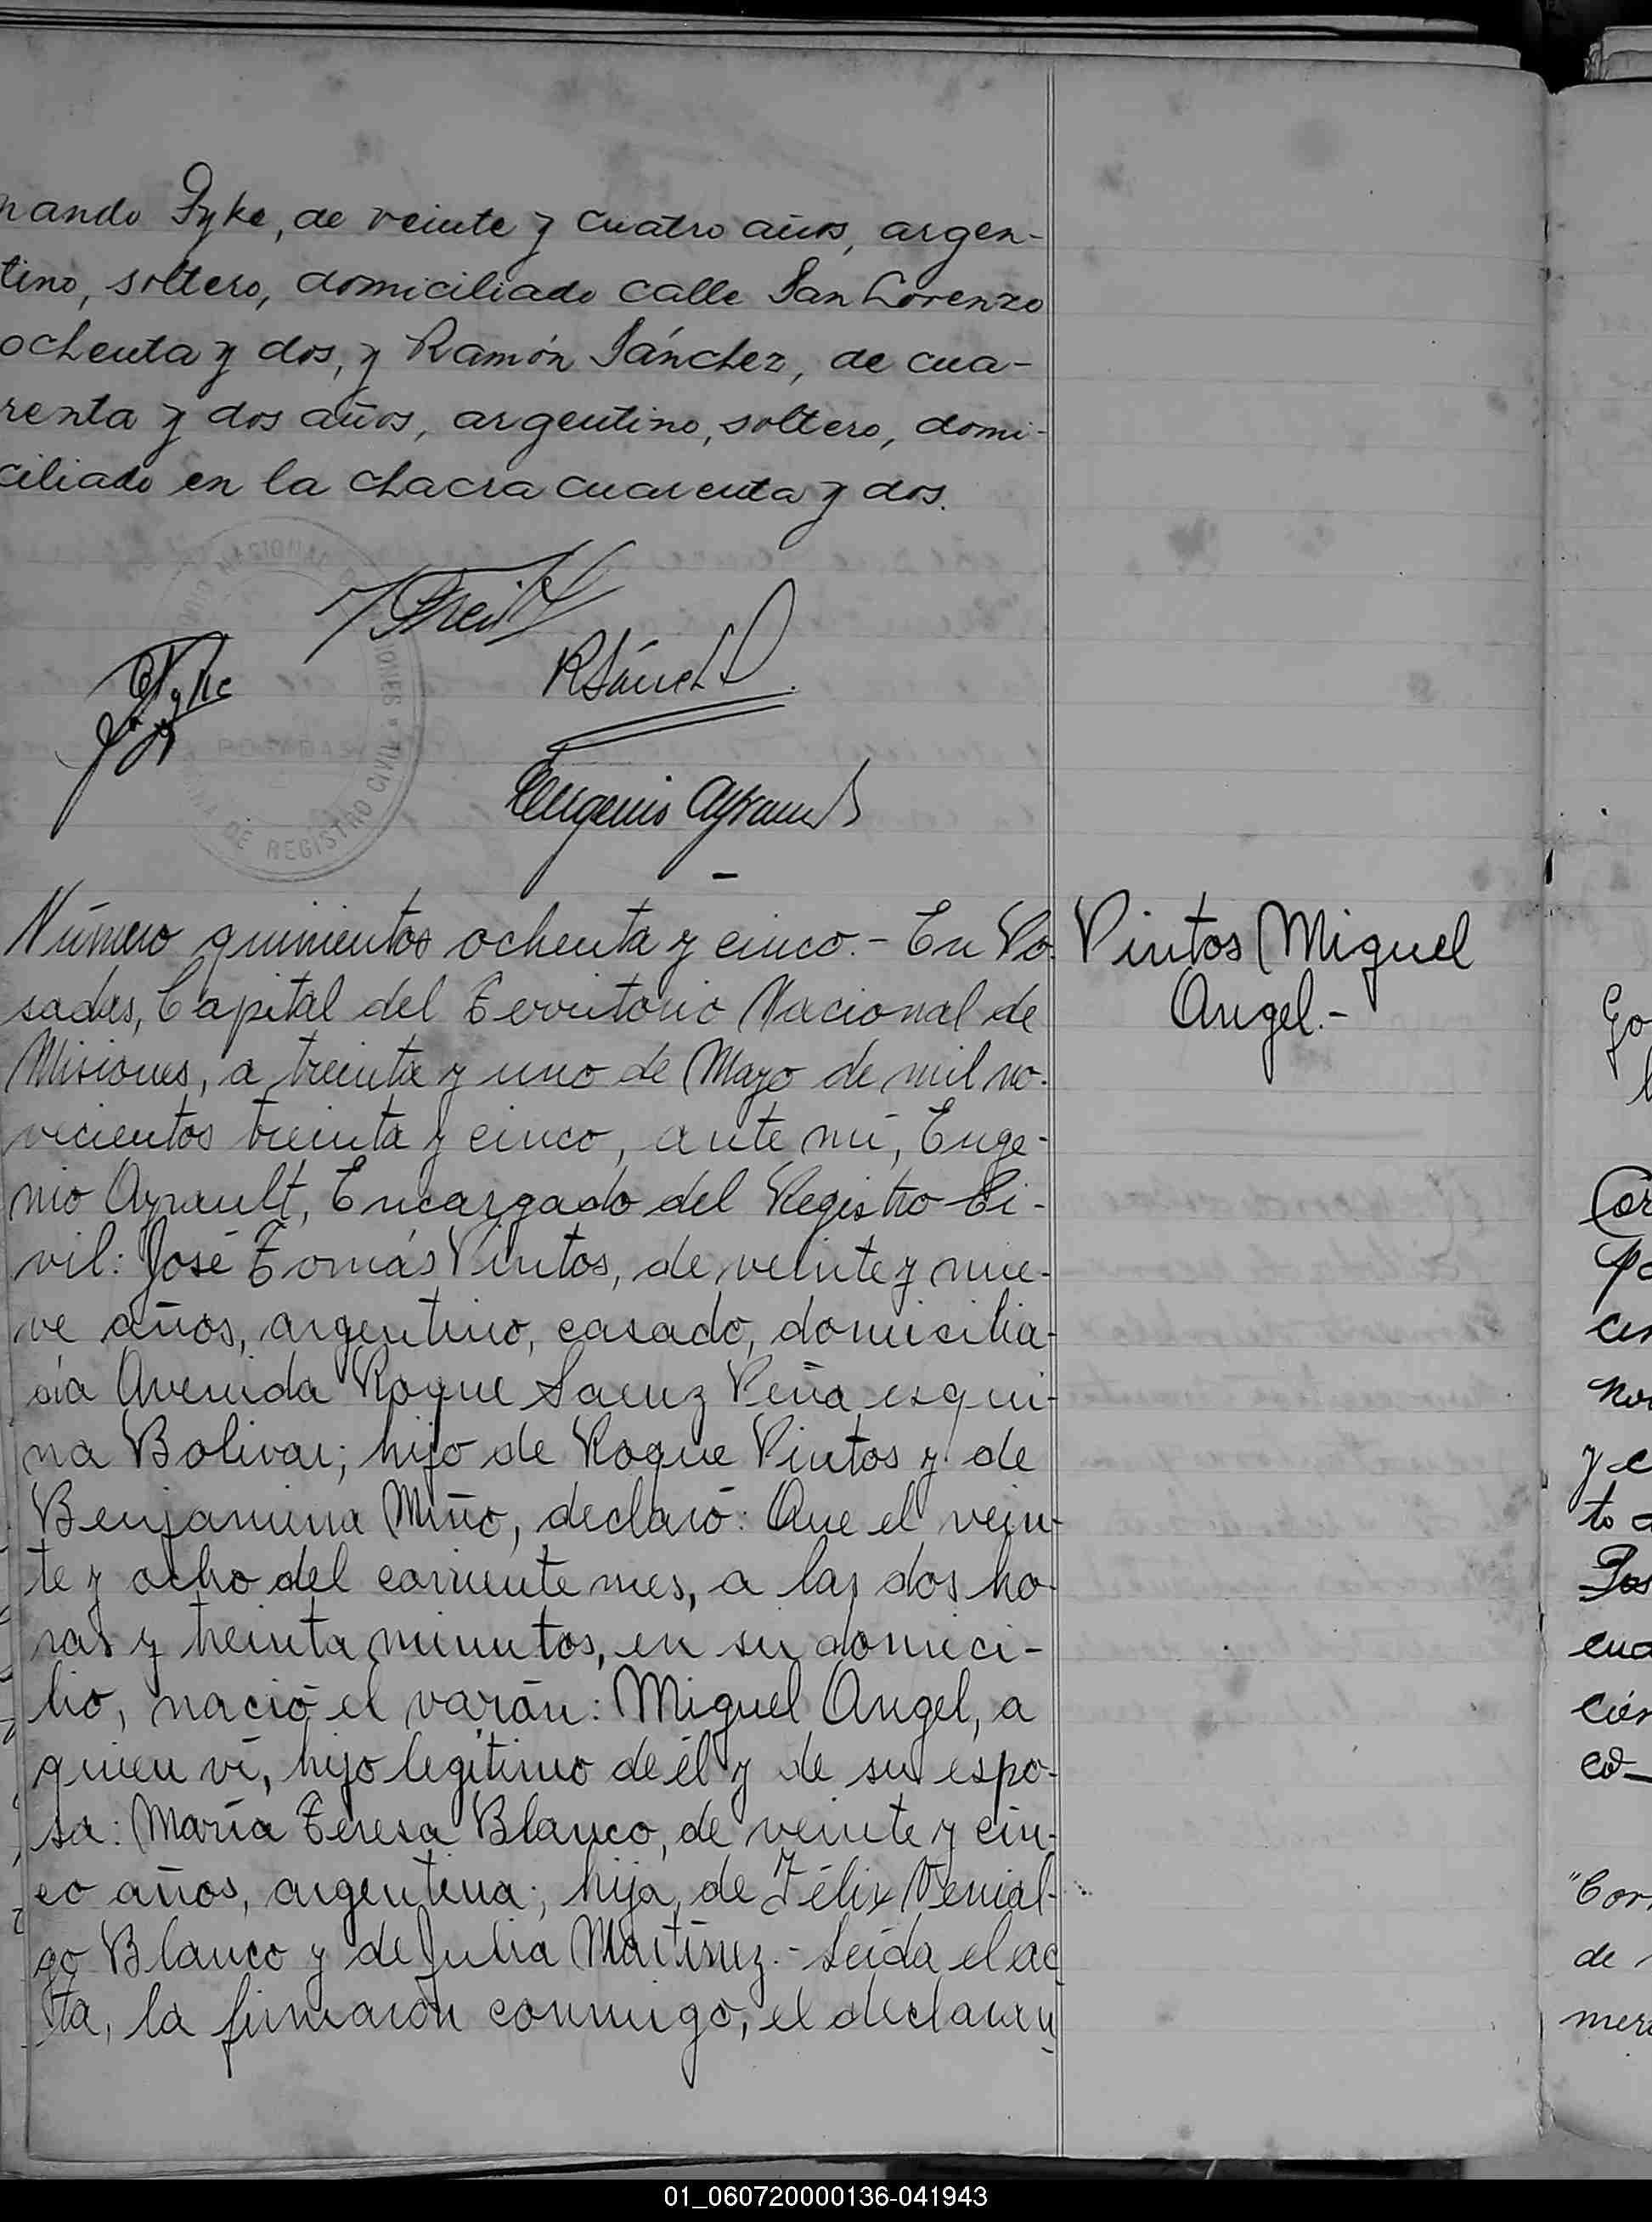 nando Fyke, de veinte y cuatro años, argen-
tino, soltero, domiciliado calle San Lorenzo
ochenta y dos, y Ramón Sánchez, de cua-
renta y dos años, argentino, soltero, domi-
ciliado en la chacra cuarenta y dos.
RSánch
Eugenio Ayrault
POSADAS
DE REGISTRO CIVIL
Número quinientos ochenta y cinco.- En Po-
sadas, Capital del Territorio Nacional de
Misiones, a treinta y uno de Mayo de mil no-
vecientos treinta y cinco, ante mí, Euge-
nio Ayrault, Encargado del Registro Ci-
vil: José Tomás Pintos, de veinte y nue-
ve años, argentino, casado, domicilia-
da Avenida Roque Saenz Peña esqui-
na Bolivar; hijo de Roque Pintos y de
Benjamina Miño, declaró: Que el vein-
te y ocho del corriente mes, a las dos ho-
ras y treinta minutos, en su domici-
lio, nació el varón: Miguel Angel, a
quien ví, hijo legítimo de él y de su espo-
sa: María Teresa Blanco, de veinte y cin-
co años, argentina; hija de Félix Venial-
go Blanco y de Julia Martinez.- Leída el ac
ta, la firmaron conmigo, el declaran
Pintos Miguel
Angel.-
Go
Cor
Po
cin
nov
y c
to
Pos
cua
cien
co-
"Cor
de
mer
01_060720000136-041943